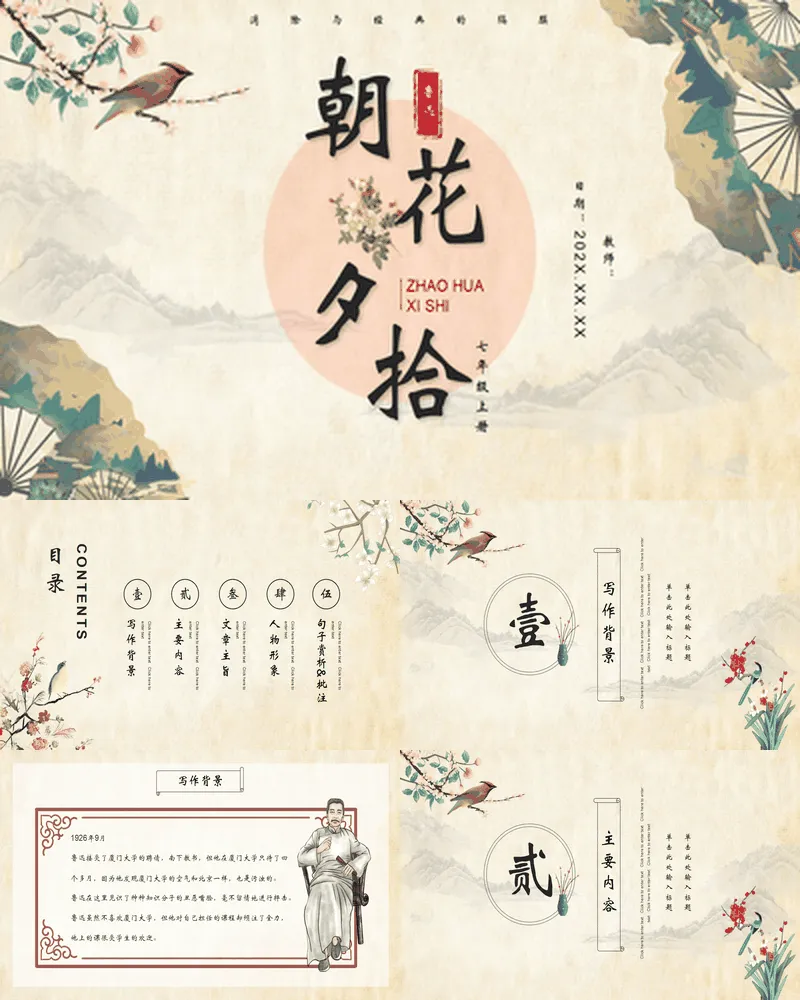 消除与经典的隔膜
朝花夕拾
鲁迅
ZHAO HUA
XI SHI
七年级上册
教师：
日期：202X.XX.XX
目录
CONTENTS
壹
写作背景
Click here to enter text Click here to
enter text
贰
主要内容
Click here to enter text Click here to
enter text
叁
文章主旨
Click here to enter text Click here to
enter text
肆
人物形象
Click here to enter text Click here to
enter text
伍
句子赏析&批注
Click here to enter text Click here to
enter text
壹
写作背景
Click here to enter text Click here to enter text Click here to enter
text Click here to enter text Click here to enter text
单击此处输入标题
单击此处输入标题
写作背景
1926年9月
鲁迅接受了厦门大学的聘请，南下教书，但他在厦门大学只待了四
个多月，因为他发现厦门大学的空气和北京一样，也是污浊的。
鲁迅在这里见识了种种知识分子的丑恶嘴脸，毫不留情地进行抨击。
鲁迅虽然不喜欢厦门大学，但他对自己担任的课程却倾注了全力，
他上的课很受学生的欢迎。
贰
主要内容
Click here to enter text Click here to enter text Click here to enter
text Click here to enter text Click here to enter text
单击此处输入标题
单击此处输入标题